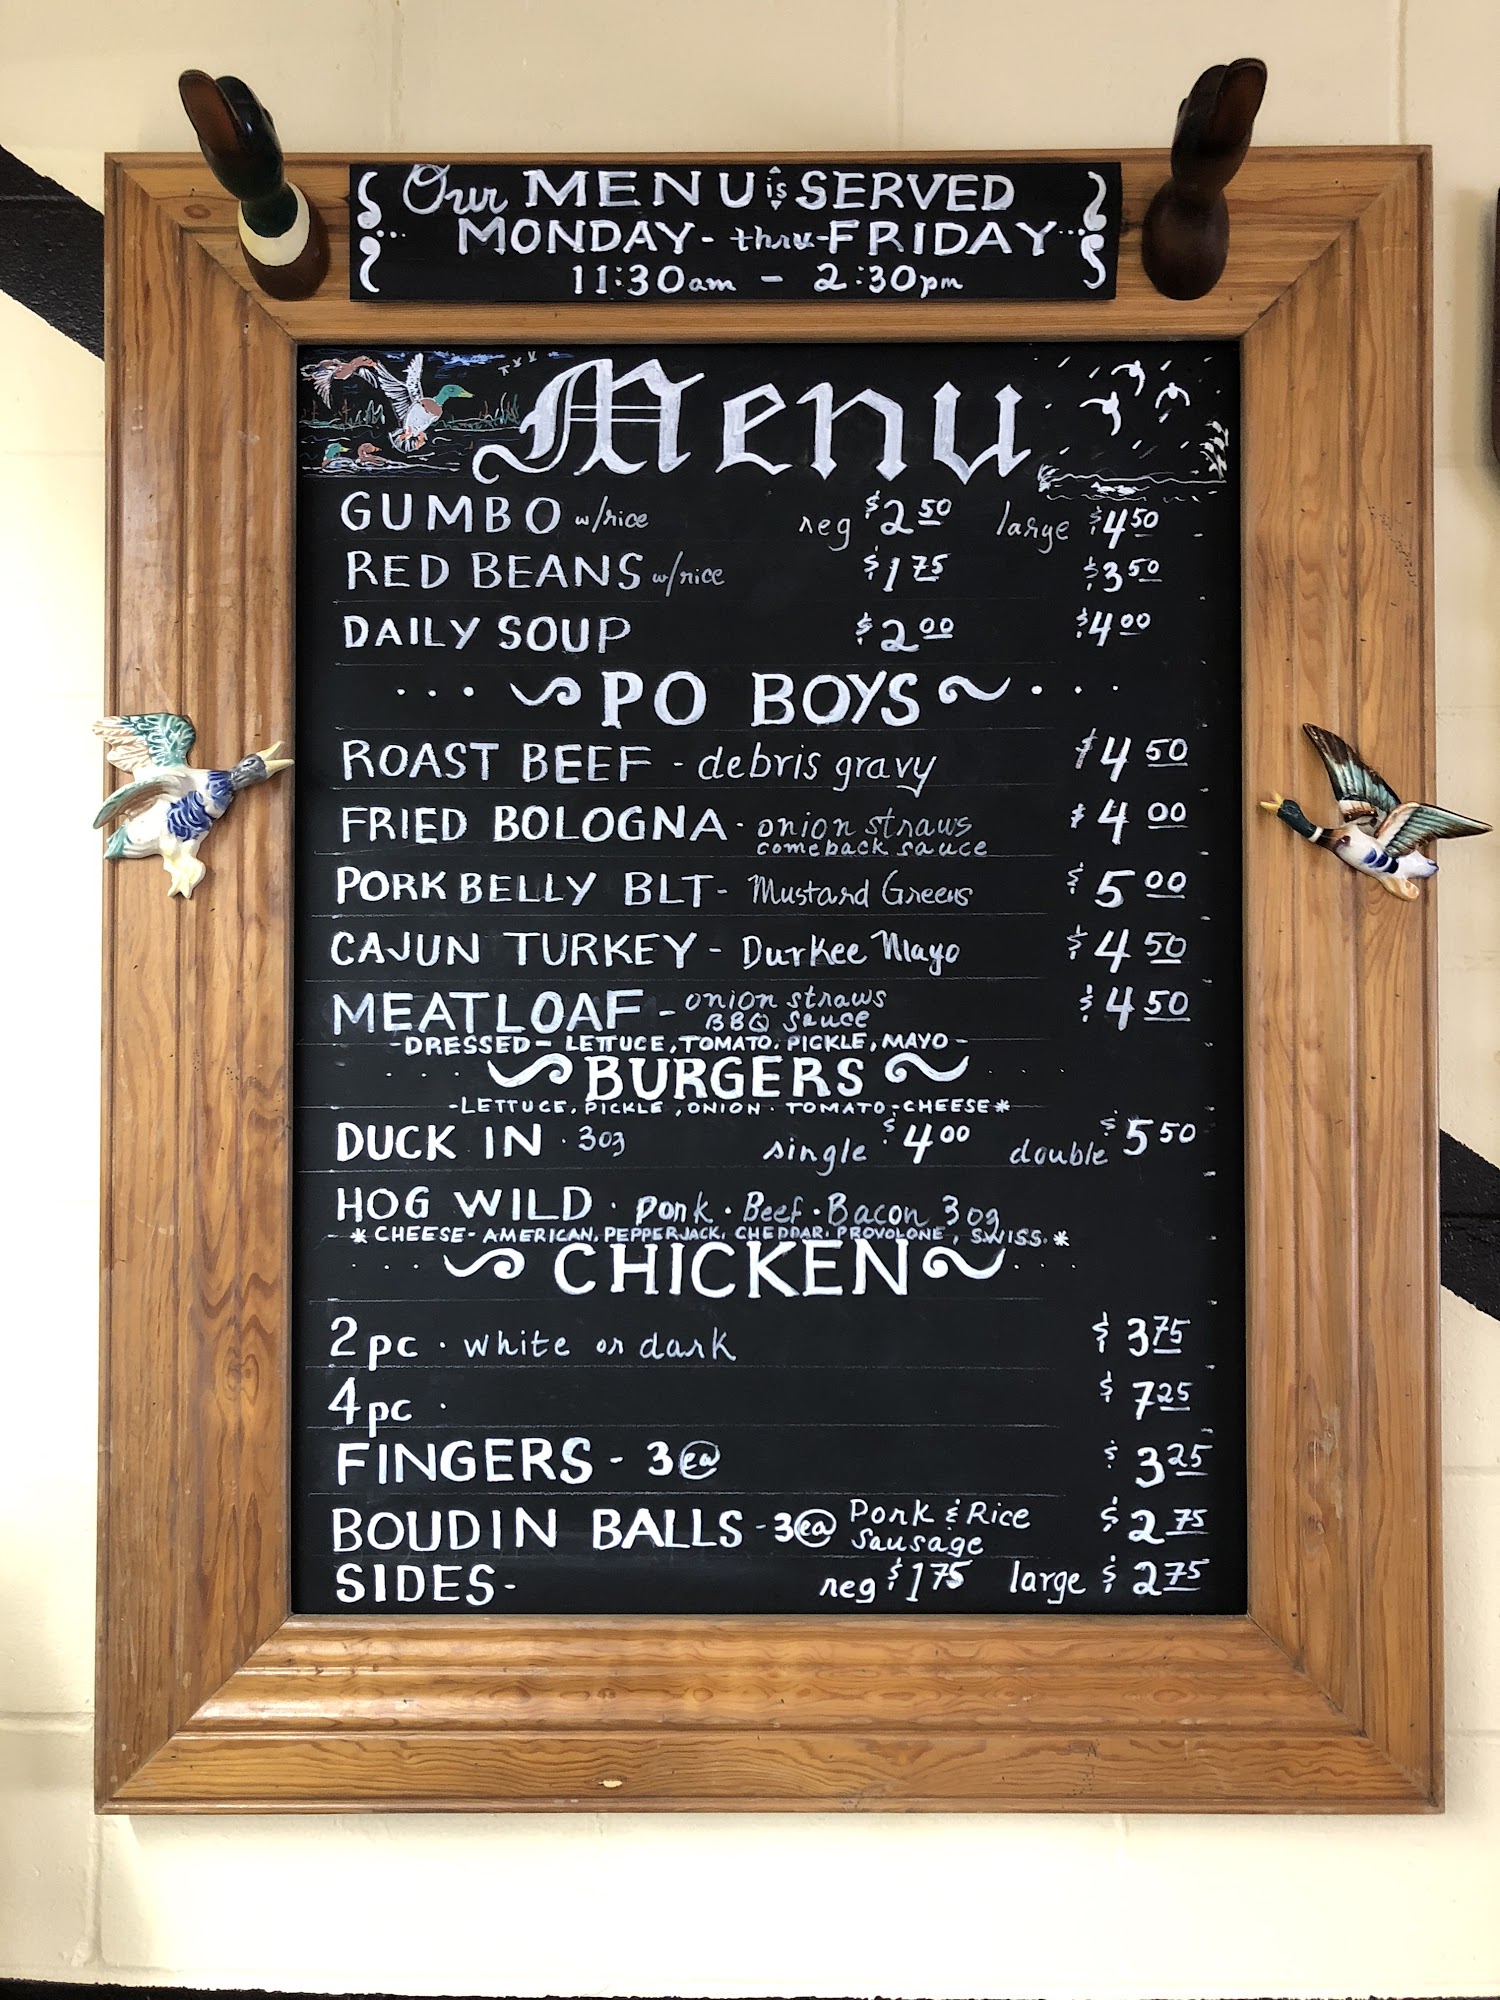 Our MENU is SERVED
MONDAY - thru - FRIDAY
11:30am - 2:30pm
Menu
GUMBO w/rice reg $2 50 large $4 50
RED BEANS w/rice $1 75 $3 50
DAILY SOUP $2 00 $4 00
... PO BOYS ...
ROAST BEEF - debris gravy $4 50
FRIED BOLOGNA - onion straws $4 00
comeback sauce
PORK BELLY BLT - Mustard Greens $5 00
CAJUN TURKEY - Durkee Mayo $4 50
MEATLOAF - onion straws $4 50
BBQ sauce
- DRESSED - LETTUCE, TOMATO, PICKLE, MAYO -
... BURGERS ...
- LETTUCE, PICKLE, ONION · TOMATO - CHEESE *
DUCK IN · 3oz single $4 00 double $5 50
HOG WILD · Pork · Beef · Bacon 3oz
* CHEESE - AMERICAN, PEPPERJACK, CHEDDAR, PROVOLONE, SWISS. *
... CHICKEN ...
2pc · white or dark $3 75
4pc · $7 25
FINGERS - 3 ea $3 25
BOUDIN BALLS - 3 ea Pork & Rice $2 75
Sausage
SIDES - reg $1 75 large $2 75